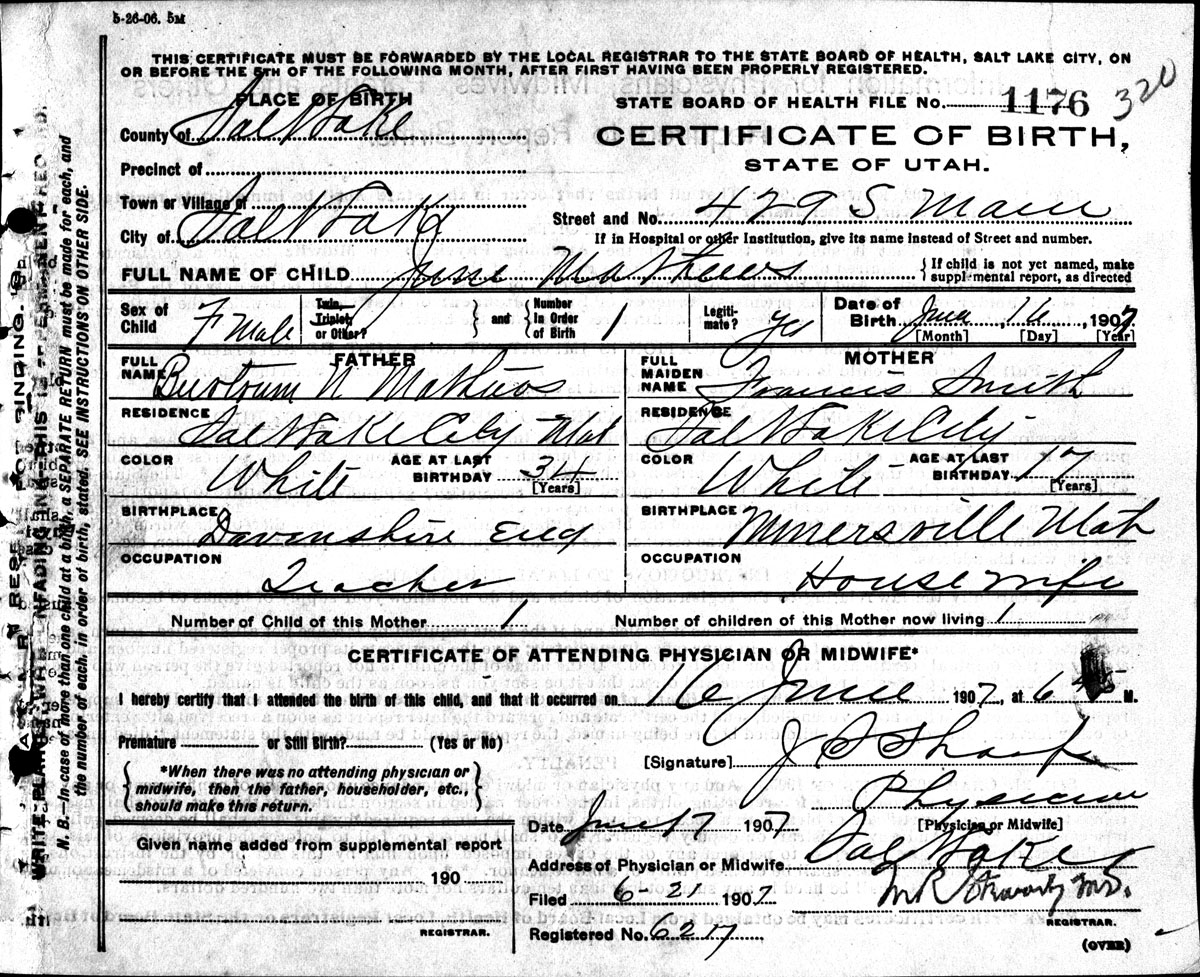 5-26-06. 5M
THIS CERTIFICATE MUST BE FORWARDED BY THE LOCAL REGISTRAR TO THE STATE BOARD OF HEALTH, SALT LAKE CITY, ON
OR BEFORE THE 5TH OF THE FOLLOWING MONTH, AFTER FIRST HAVING BEEN PROPERLY REGISTERED.
PLACE OF BIRTH
County of Salt Lake
Precinct of
Town or Village of
City of Salt Lake
STATE BOARD OF HEALTH FILE No. 1176 320
CERTIFICATE OF BIRTH,
STATE OF UTAH.
Street and No. 429 S Main
If in Hospital or other Institution, give its name instead of Street and number.
FULL NAME OF CHILD June Mathews { If child is not yet named, make
supplemental report, as directed
Sex of Child F Male Twin, Triplet, or Other? } and { Number In Order of Birth 1 Legiti- mate? Yes Date of Birth June 16, 1907
[Month] [Day] [Year]
FATHER
FULL NAME N Mathews
RESIDENCE Salt Lake City Utah
COLOR White AGE AT LAST BIRTHDAY 34
[Years]
BIRTHPLACE Devonshire Eng
OCCUPATION Teacher
MOTHER
FULL MAIDEN NAME Francis Smith
RESIDENCE Salt Lake City
COLOR White AGE AT LAST BIRTHDAY 17
[Years]
BIRTHPLACE Minersville Utah
OCCUPATION House wife
Number of Child of this Mother 1 Number of children of this Mother now living 1
CERTIFICATE OF ATTENDING PHYSICIAN OR MIDWIFE*
I hereby certify that I attended the birth of this child, and that it occurred on 16 June 1907, at 6 M.
Premature or Still Birth? (Yes or No)
{ *When there was no attending physician or
midwife, then the father, householder, etc.,
should make this return. }
Given name added from supplemental report
190
REGISTRAR.
[Signature] J S Sharp
Physician
[Physician or Midwife]
Date June 17 1907
Address of Physician or Midwife Salt Lake
Filed 6-21 1907
M.D.
REGISTRAR.
Registered No. 6217
(OVER)
N. B.—In case of more than one child at a birth, a SEPARATE RETURN must be made for each, and
the number of each, in order of birth, stated. SEE INSTRUCTIONS ON OTHER SIDE.